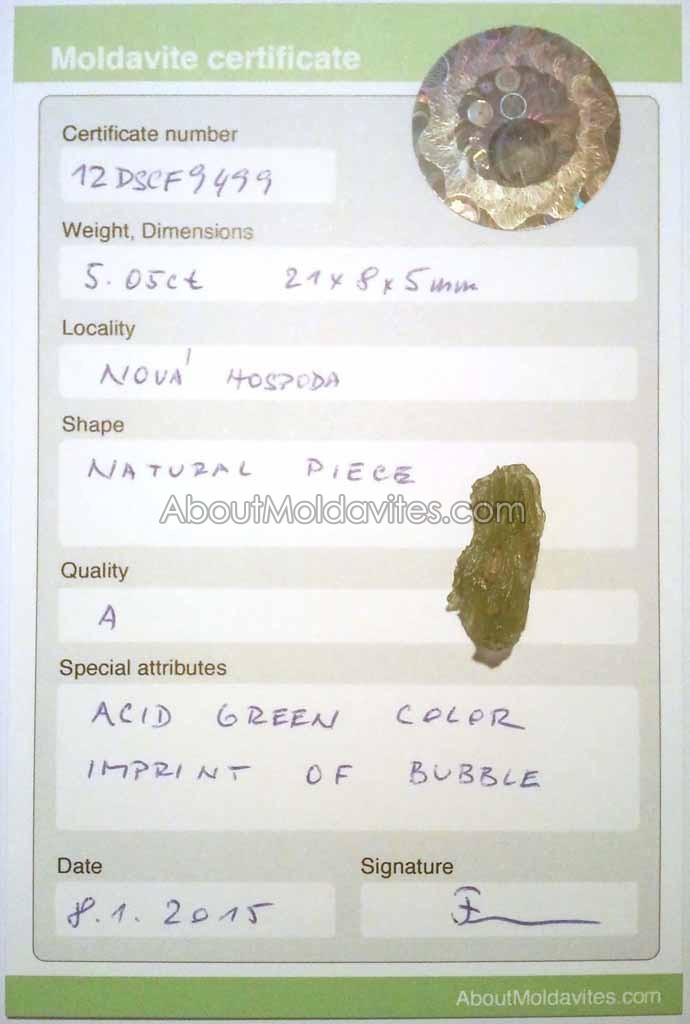 Moldavite certificate
Certificate number
12DSCF9499
Weight, Dimensions
5.05ct 21x8x5mm
Locality
NOVÁ HOSPODA
Shape
NATURAL PIECE
AboutMoldavites.com
Quality
A
Special attributes
ACID GREEN COLOR
IMPRINT OF BUBBLE
Date Signature
8.1.2015
AboutMoldavites.com